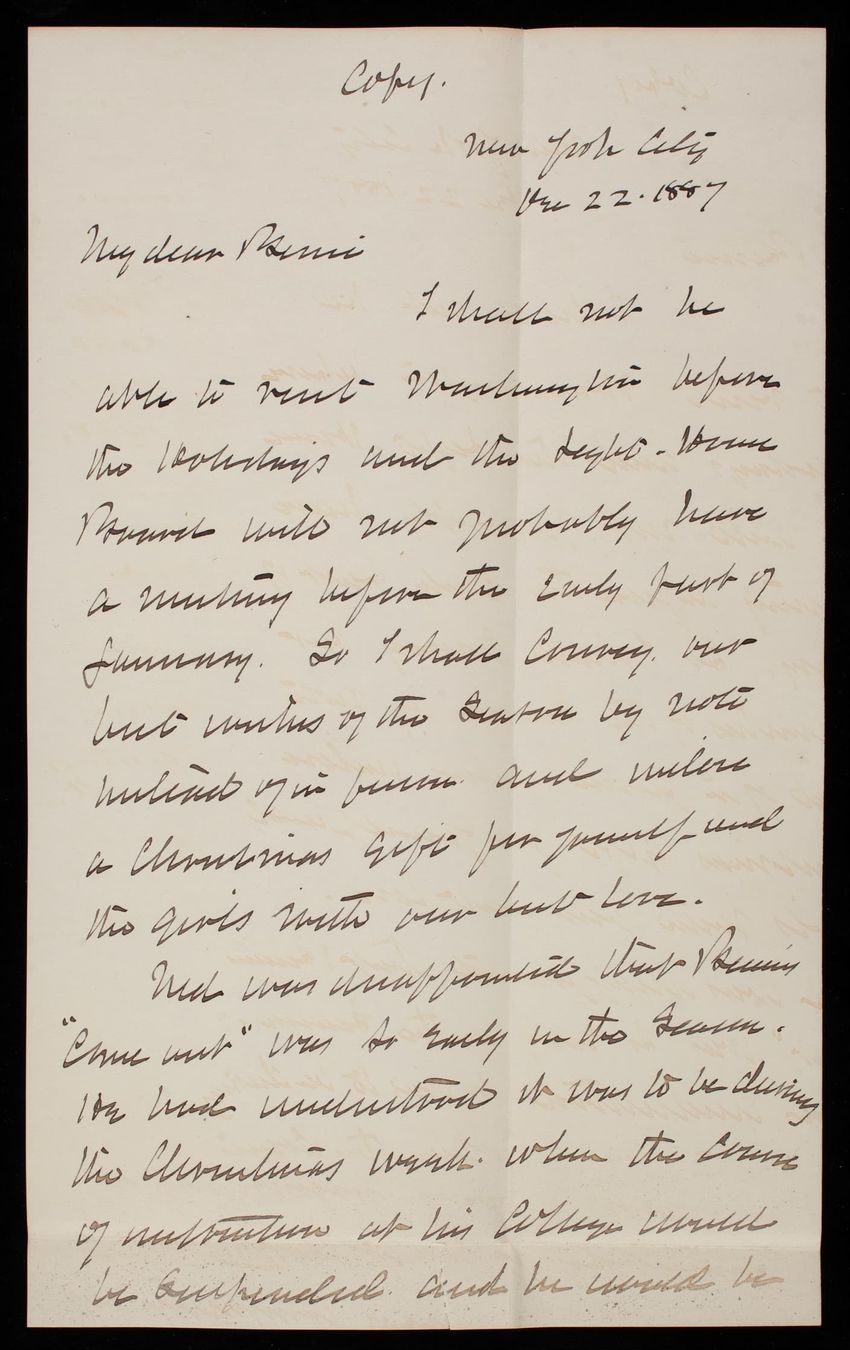 Copy.
New York City
Dec 22. 1887
My dear Bernie
I shall not be
able to visit Washington before
the Holidays and the Light-House
Board will not probably have
a meeting before the early part of
January. So I shall convey our
best wishes of the Season by note
instead of in person and inclose
a Christmas gift for yourself and
the girls with our best love.
Ned was disappointed that
"Come out" was so early in the Season.
He had understood it was to be during
the Christmas week. when the course
of instruction at his College would
be suspended and he would be